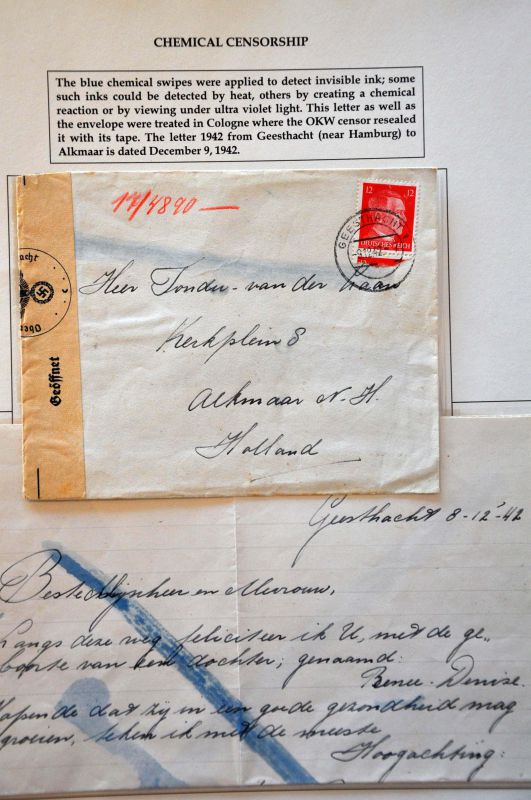 CHEMICAL CENSORSHIP
The blue chemical swipes were applied to detect invisible ink; some
such inks could be detected by heat, others by creating a chemical
reaction or by viewing under ultra violet light. This letter as well as
the envelope were treated in Cologne where the OKW censor resealed
it with its tape. The letter 1942 from Geesthacht (near Hamburg) to
Alkmaar is dated December 9, 1942.
17/4890 —
12 12
DEUTSCHES REICH
GEESTHACHT
Geöffnet
Heer Tonder - van der Laan
Kerkplein 8
Alkmaar N. H.
Holland
Geesthacht 8-12-'42
Beste Mijnheer en Mevrouw,
Langs deze weg feliciteer ik U, met de ge„
boorte van een dochter; genaamd:
Renee-Denise.
Hopende dat zij in een goede gezondheid mag
groeien, teken ik met de meeste
Hoogachting: